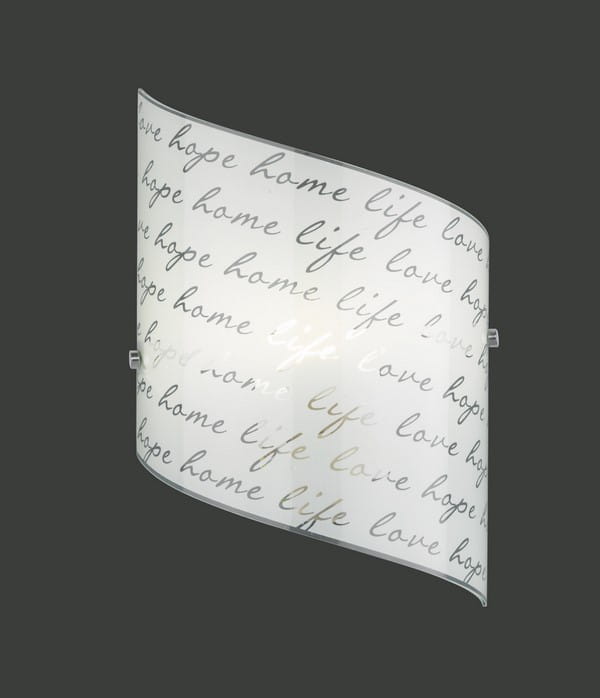 love hope home life love
hope home life love hope
hope home life love
hope home life love hope
hope home life love hope
hope home life love hope
hope home life love hope